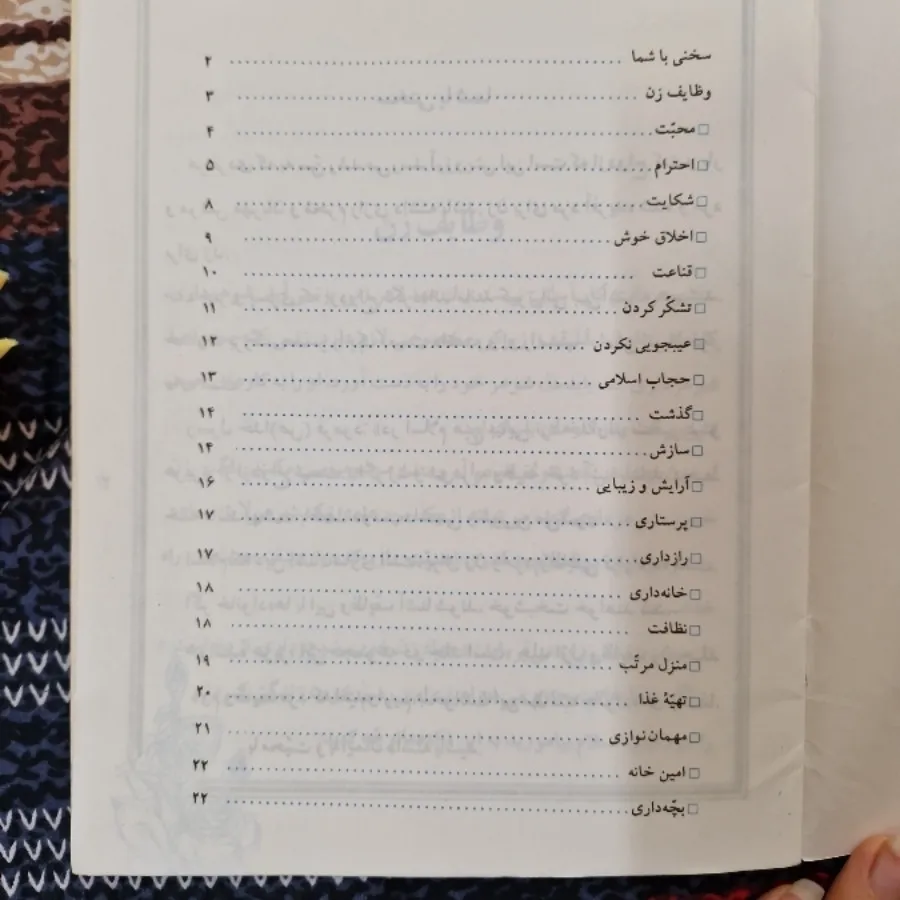 سخنی با شما ........ ۲
وظایف زن ........ ۳
□ محبّت ........ ۴
□ احترام ........ ۵
□ شکایت ........ ۸
□ اخلاق خوش ........ ۹
□ قناعت ........ ۱۰
□ تشکّر کردن ........ ۱۱
□ عیبجویی نکردن ........ ۱۲
□ حجاب اسلامی ........ ۱۳
□ گذشت ........ ۱۴
□ سازش ........ ۱۴
□ آرایش و زیبایی ........ ۱۶
□ پرستاری ........ ۱۷
□ رازداری ........ ۱۷
□ خانه‌داری ........ ۱۸
□ نظافت ........ ۱۸
□ منزل مرتّب ........ ۱۹
□ تهیّهٔ غذا ........ ۲۰
□ مهمان‌نوازی ........ ۲۱
□ امین خانه ........ ۲۲
□ بچّه‌داری ........ ۲۲